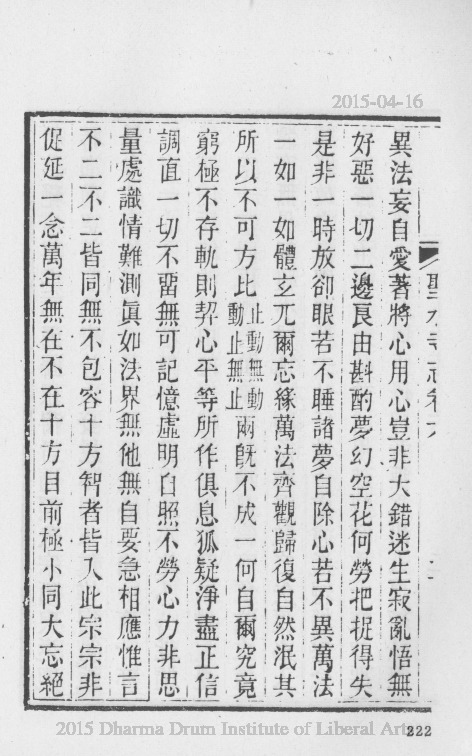 2015-04-16
聖水寺志卷六
異法妄自愛著將心用心豈非大錯迷生寂亂悟無
好惡一切二邊良由斟酌夢幻空花何勞把捉得失
是非一時放卻眼若不睡諸夢自除心若不異萬法
一如一如體玄兀爾忘緣萬法齊觀歸復自然泯其
所以不可方比止動無動動止無止兩旣不成一何自爾究竟
窮極不存軌則契心平等所作俱息狐疑淨盡正信
調直一切不畱無可記憶虛明自照不勞心力非思
量處識情難測眞如法界無他無自要急相應惟言
不二不二皆同無不包容十方智者皆入此宗宗非
促延一念萬年無在不在十方目前極小同大忘絕
2015 Dharma Drum Institute of Liberal Arts
222